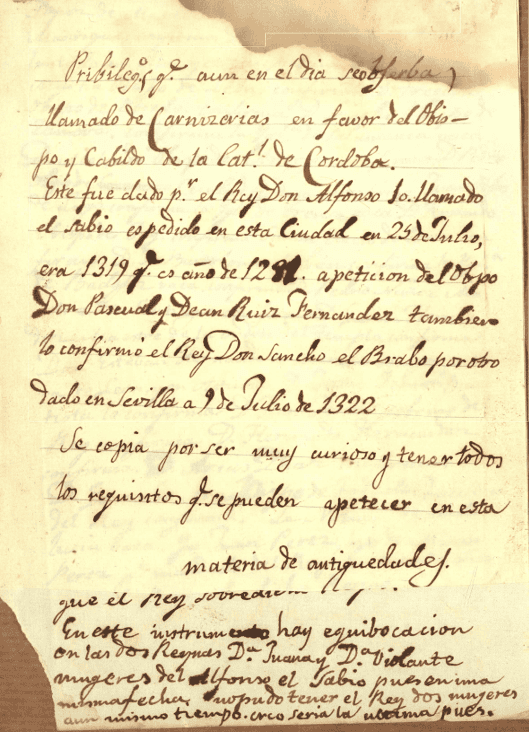 Pribilegº, qᵉ. aun en el dia seobserba,
llamado de Carnizerias en favor del Obis-
po y Cabildo de la Catˡ. de Cordoba.
Este fue dado pʳ. el Rey Don Alfonso 10. llamado
el sabio espedido en esta Ciudad en 25 de Julio,
era 1319 qᵉ. es año de 1281. a peticion del Obpo
Don Pascual y Dean Ruiz Fernandez tambien
lo confirmó el Rey Don Sancho el Brabo por otro
dado en Sevilla a 9 de Julio de 1322
Se copia por ser muy curioso y tener todos
los requisitos qᵉ. se pueden apetecer en esta
materia de antiguedades.
que el Rey
En este instrumento hay equibocacion
en las dos Reynas Dª. Juana y Dª. Violante
mugeres del Alfonso el Sabio pues en una
misma fecha, no pudo tener el Rey dos mugeres
aun mismo tiempo. creo seria la ultima pues.